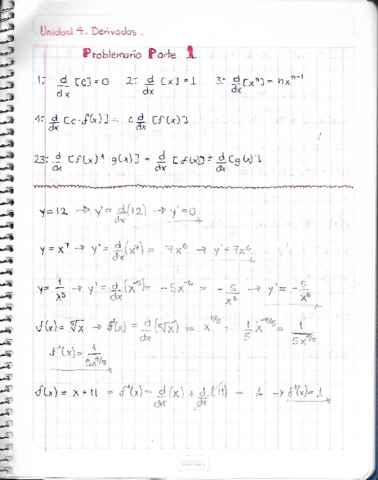 Unidad 4. Derivadas.
Problemario Parte 1
1: d/dx [c] = 0 2: d/dx [x] = 1 3: d/dx [xⁿ] = nxⁿ⁻¹
4: d/dx [c·f(x)] = c d/dx [f(x)]
23: d/dx [f(x) ± g(x)] = d/dx [f(x)] ± d/dx [g(x)]
y = 12 → y' = d/dx (12) → y' = 0
y = x⁷ → y' = d/dx (x⁷) = 7x⁶ → y' = 7x⁶
y = 1/x⁵ → y' = d/dx (x⁻⁵) = -5x⁻⁶ = -5/x⁶ → y' = -5/x⁶
f(x) = ⁵√x → f'(x) = d/dx (⁵√x) = x^(1/5) = 1/5 x^(-4/5) = 1/5x^(4/5)
f'(x) = 1/5x^(4/5)
f(x) = x + 11 = f'(x) = d/dx (x) + d/dx (11) = 1 → f'(x) = 1